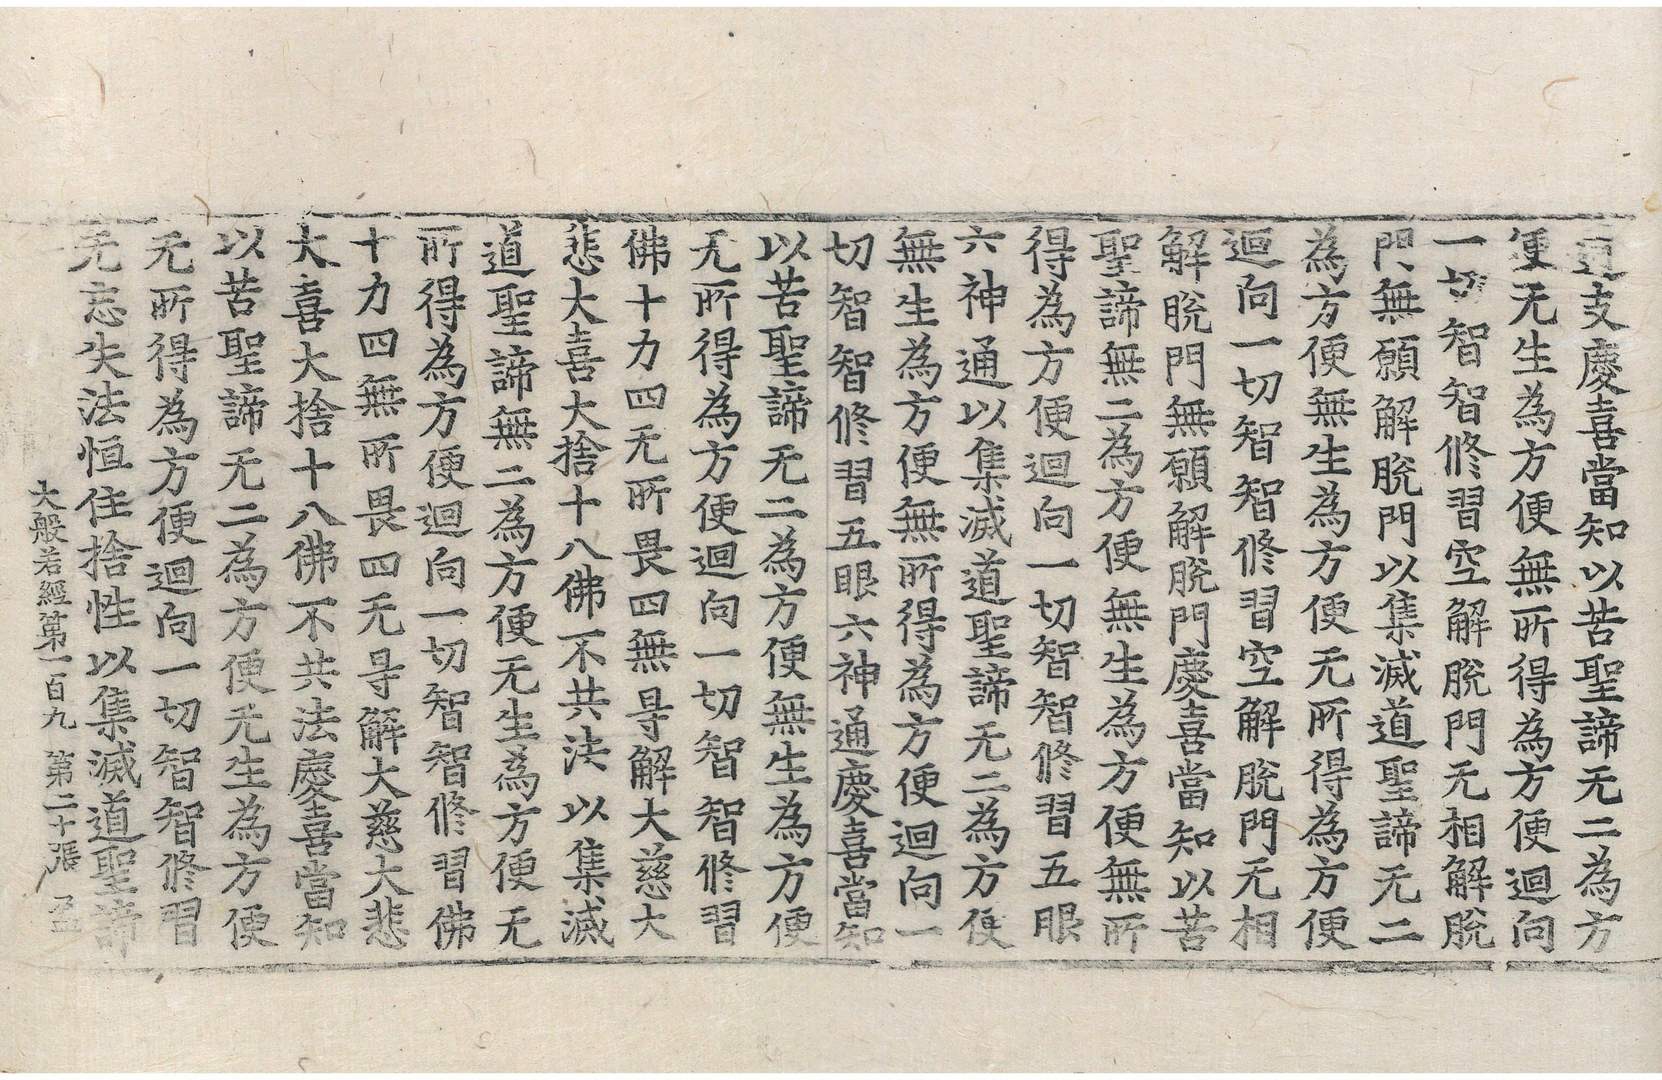 道支慶喜當知以苦聖諦无二為方
便无生為方便無所得為方便迴向
一切智智修習空解脫門无相解脫
門無願解脫門以集滅道聖諦无二
為方便無生為方便无所得為方便
迴向一切智智修習空解脫門无相
解脫門無願解脫門慶喜當知以苦
聖諦無二為方便無生為方便無所
得為方便迴向一切智智修習五眼
六神通以集滅道聖諦无二為方便
無生為方便無所得為方便迴向一
切智智修習五眼六神通慶喜當知
以苦聖諦无二為方便無生為方便
无所得為方便迴向一切智智修習
佛十力四无所畏四無㝵解大慈大
悲大喜大捨十八佛不共法以集滅
道聖諦無二為方便无生為方便无
所得為方便迴向一切智智修習佛
十力四無所畏四无㝵解大慈大悲
大喜大捨十八佛不共法慶喜當知
以苦聖諦无二為方便无生為方便
无所得為方便迴向一切智智修習
无忘失法恒住捨性以集滅道聖諦
大般若經第一百九 第二十張 盈